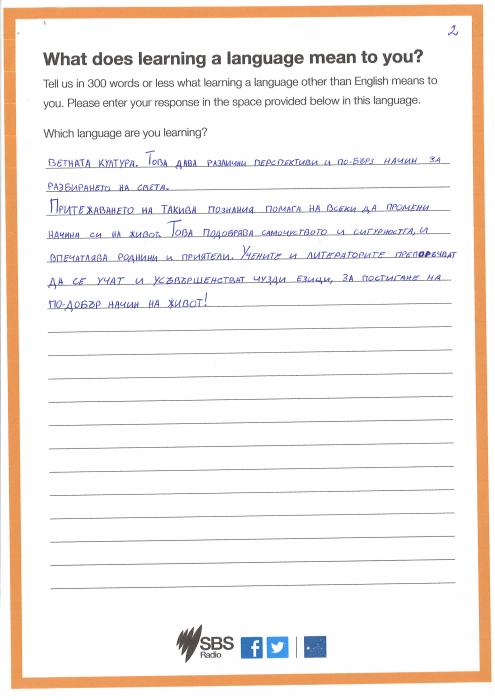 2
What does learning a language mean to you?
Tell us in 300 words or less what learning a language other than English means to
you. Please enter your response in the space provided below in this language.
Which language are you learning?
ВЕТНАТА КУЛТУРА. ТОВА ДАВА РАЗЛИЧНИ ПЕРСПЕКТИВИ И ПО-БЪРЗ НАЧИН ЗА
РАЗБИРАНЕТО НА СВЕТА.
ПРИТЕЖАВАНЕТО НА ТАКИВА ПОЗНАНИЯ ПОМАГА НА ВСЕКИ ДА ПРОМЕНИ
НАЧИНА СИ НА ЖИВОТ. ТОВА ПОДОБРЯВА САМОЧУВСТВОТО И СИГУРНОСТТА, И
ВПЕЧАТЛЯВА РОДНИНИ И ПРИЯТЕЛИ. УЧЕНИТЕ И ЛИТЕРАТОРИТЕ ПРЕПОРЪЧВАТ
ДА СЕ УЧАТ И УСЪВЪРШЕНСТВАТ ЧУЖДИ ЕЗИЦИ, ЗА ПОСТИГАНЕ НА
ПО-ДОБЪР НАЧИН НА ЖИВОТ!
SBS
Radio